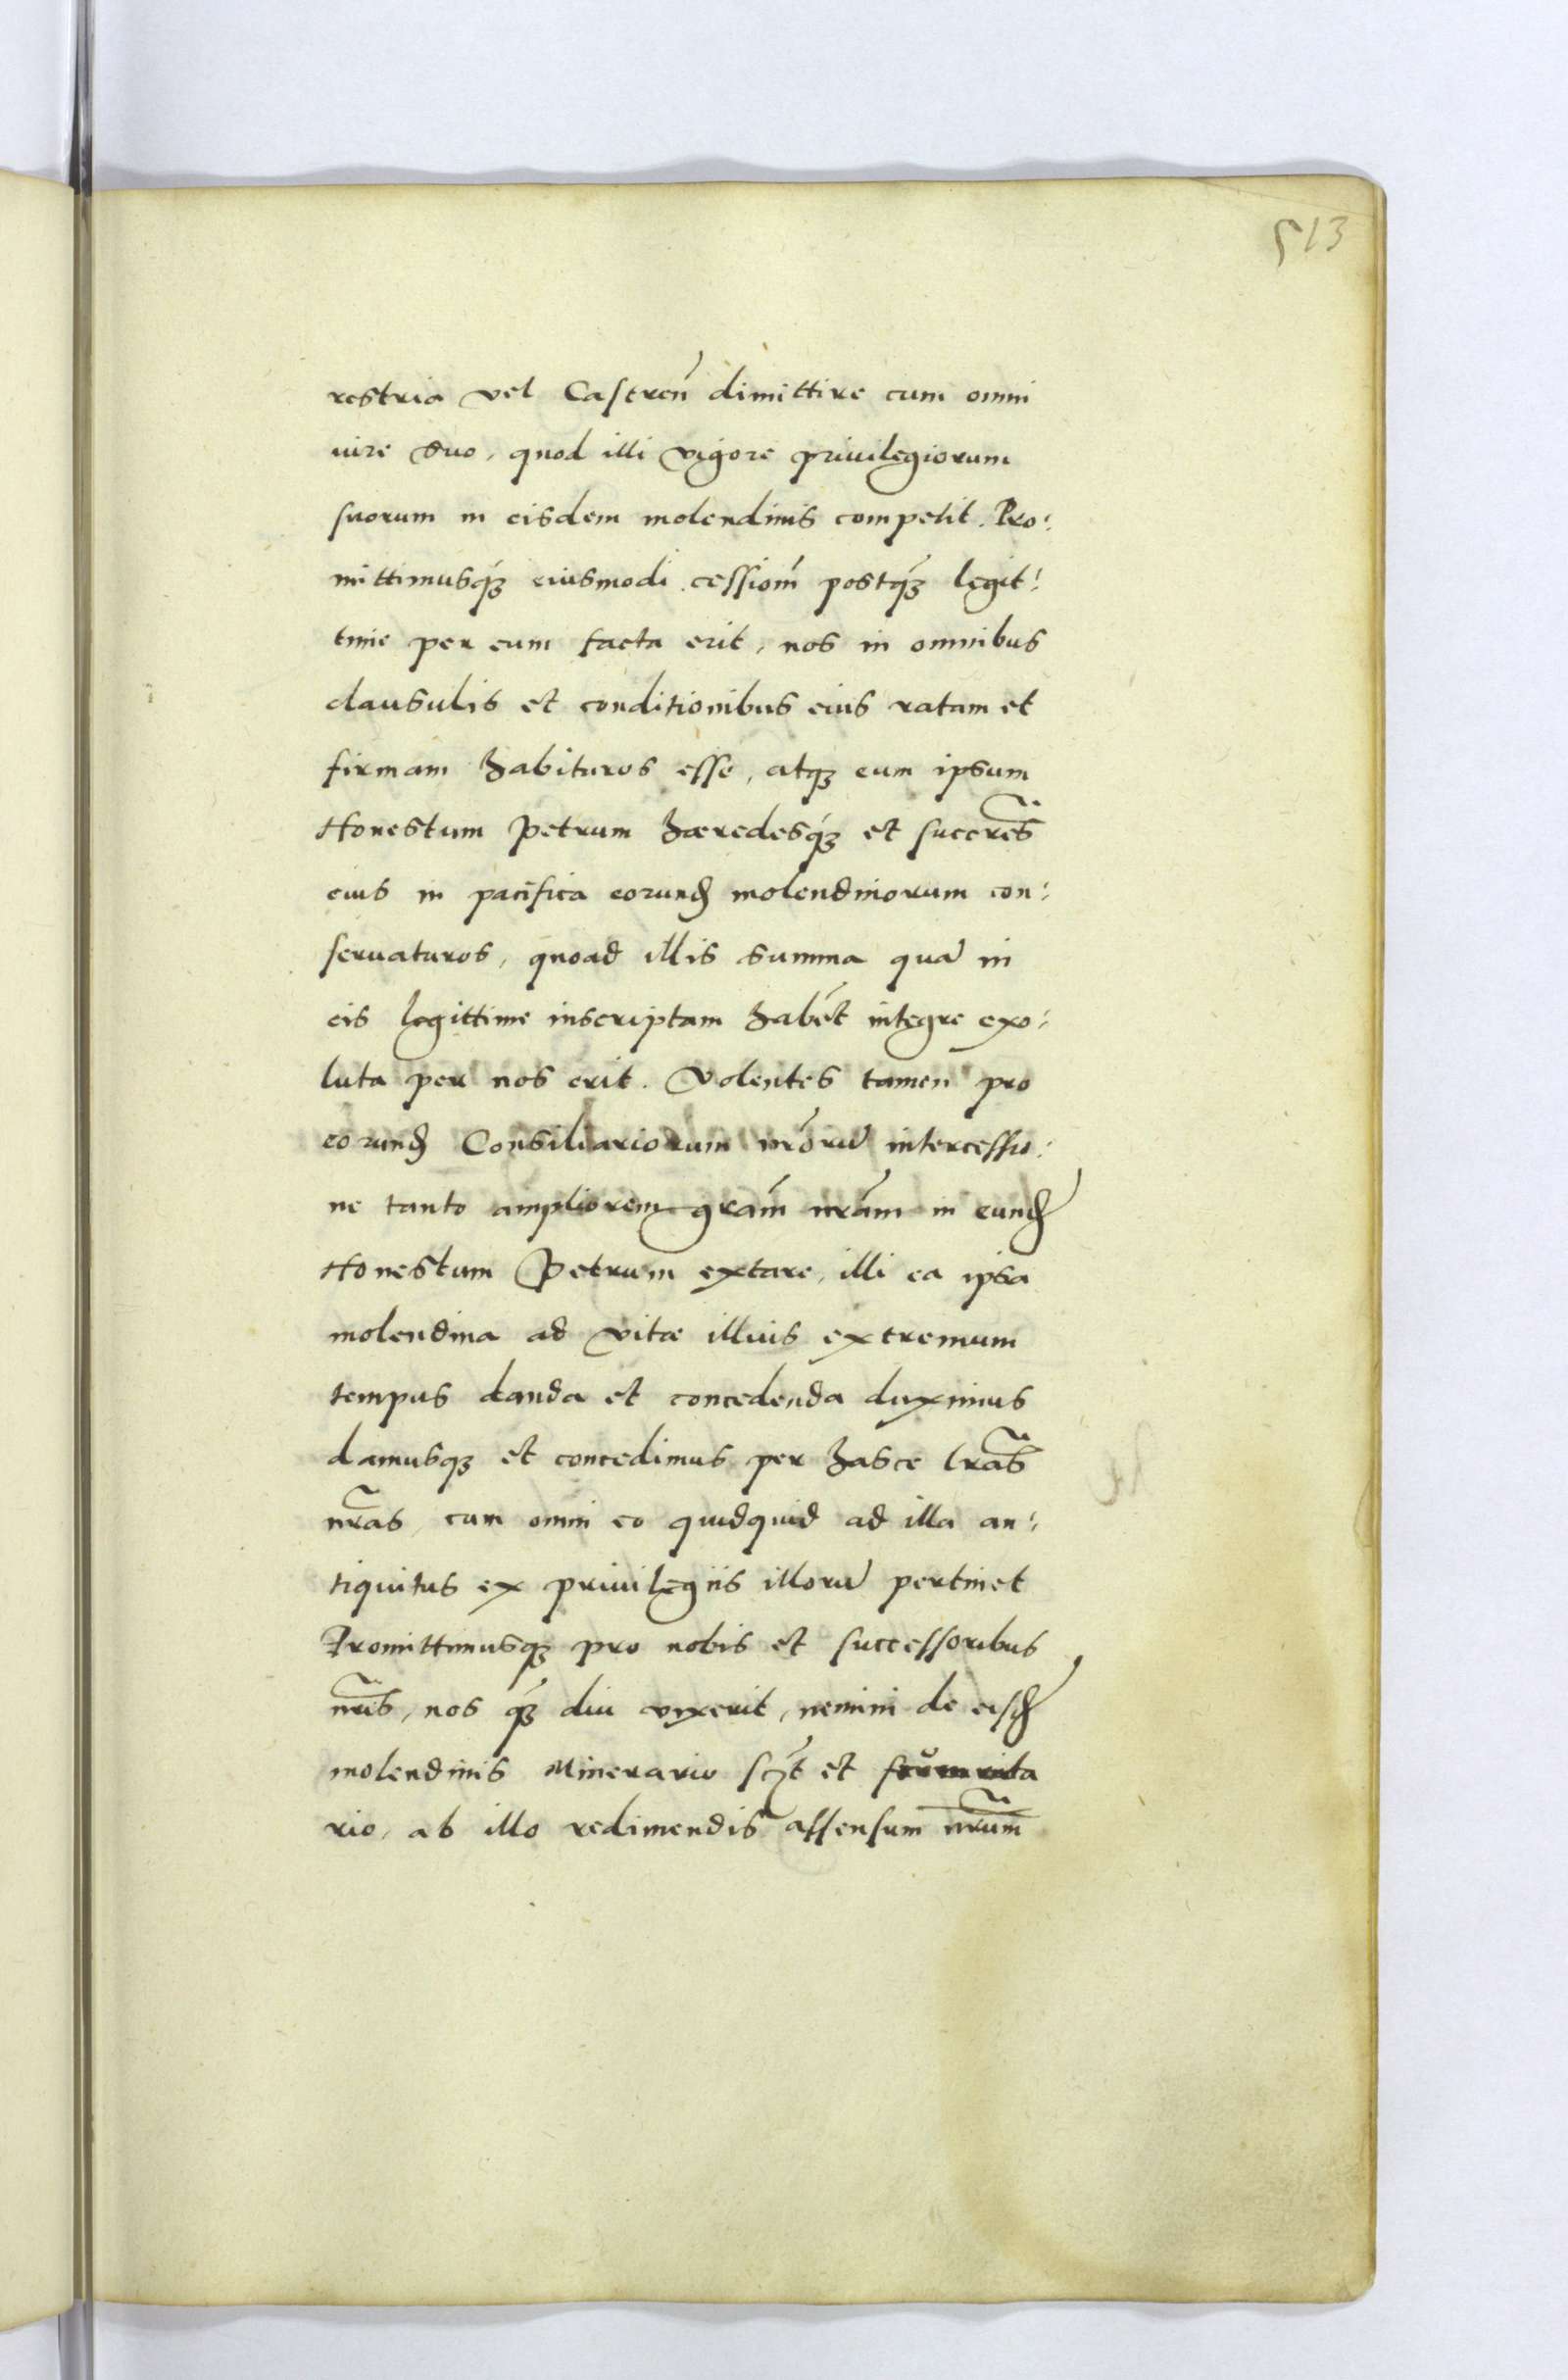 513
restria vel Castren̄ dimittire cum omni
iure suo, quod illi vigore priuilegiorum
suorum in eisdem molendinis competit. Pro:
mittimusq́ꝫ eiusmodi cessiom̄ postq́ꝫ legit:
time per eum facta erit, nos in omnibus
clausulis et conditionibus eius ratam et
firmam habituros esse, atqꝫ eum ipsum
Honestum Petrum hæredesq́ꝫ et succres̃
eius in pacifica eorund molendinorum con:
seruaturos, quoad illis summa quā in
eis legittime inscriptam habēt integre exo:
luta per nos erit. Volentes tamen pro
eorund Consiliariorum nrōrū intercessio:
ne tanto ampliorem grām nrām in eund
Honestum Petrum extare, illi ea ipsa
molendina ad vitæ illius extremum
tempus danda et concedenda duximus
damusqꝫ et concedimus per hasce lras̃
nras̃, cum omni eo quidquid ad illa an:
tiquitus ex priuilegiis illorū pertinet
Promittimusqꝫ pro nobis et successoribus
nris̃, nos q́ꝫ diu vixerit, nemini de eisd
molendinis Minerario sczt et
rio, ab illo redimendis assensum nrum̃